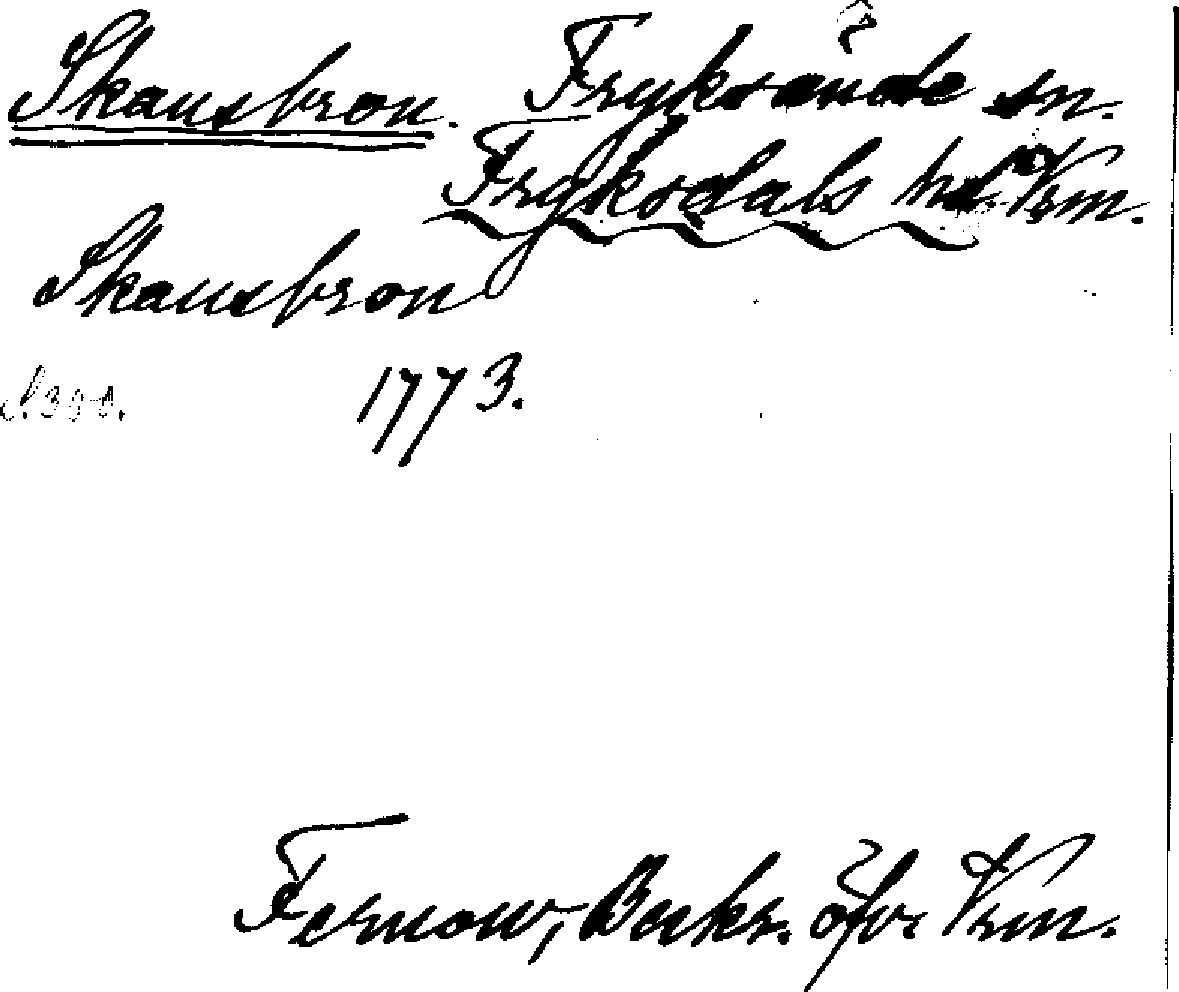 Skansbron. Fryksände sn.
Fryksdals hd. Vrm.
Skansbron
S. 300. 1773.
Fernow, Beskr. öfv. Vrm.